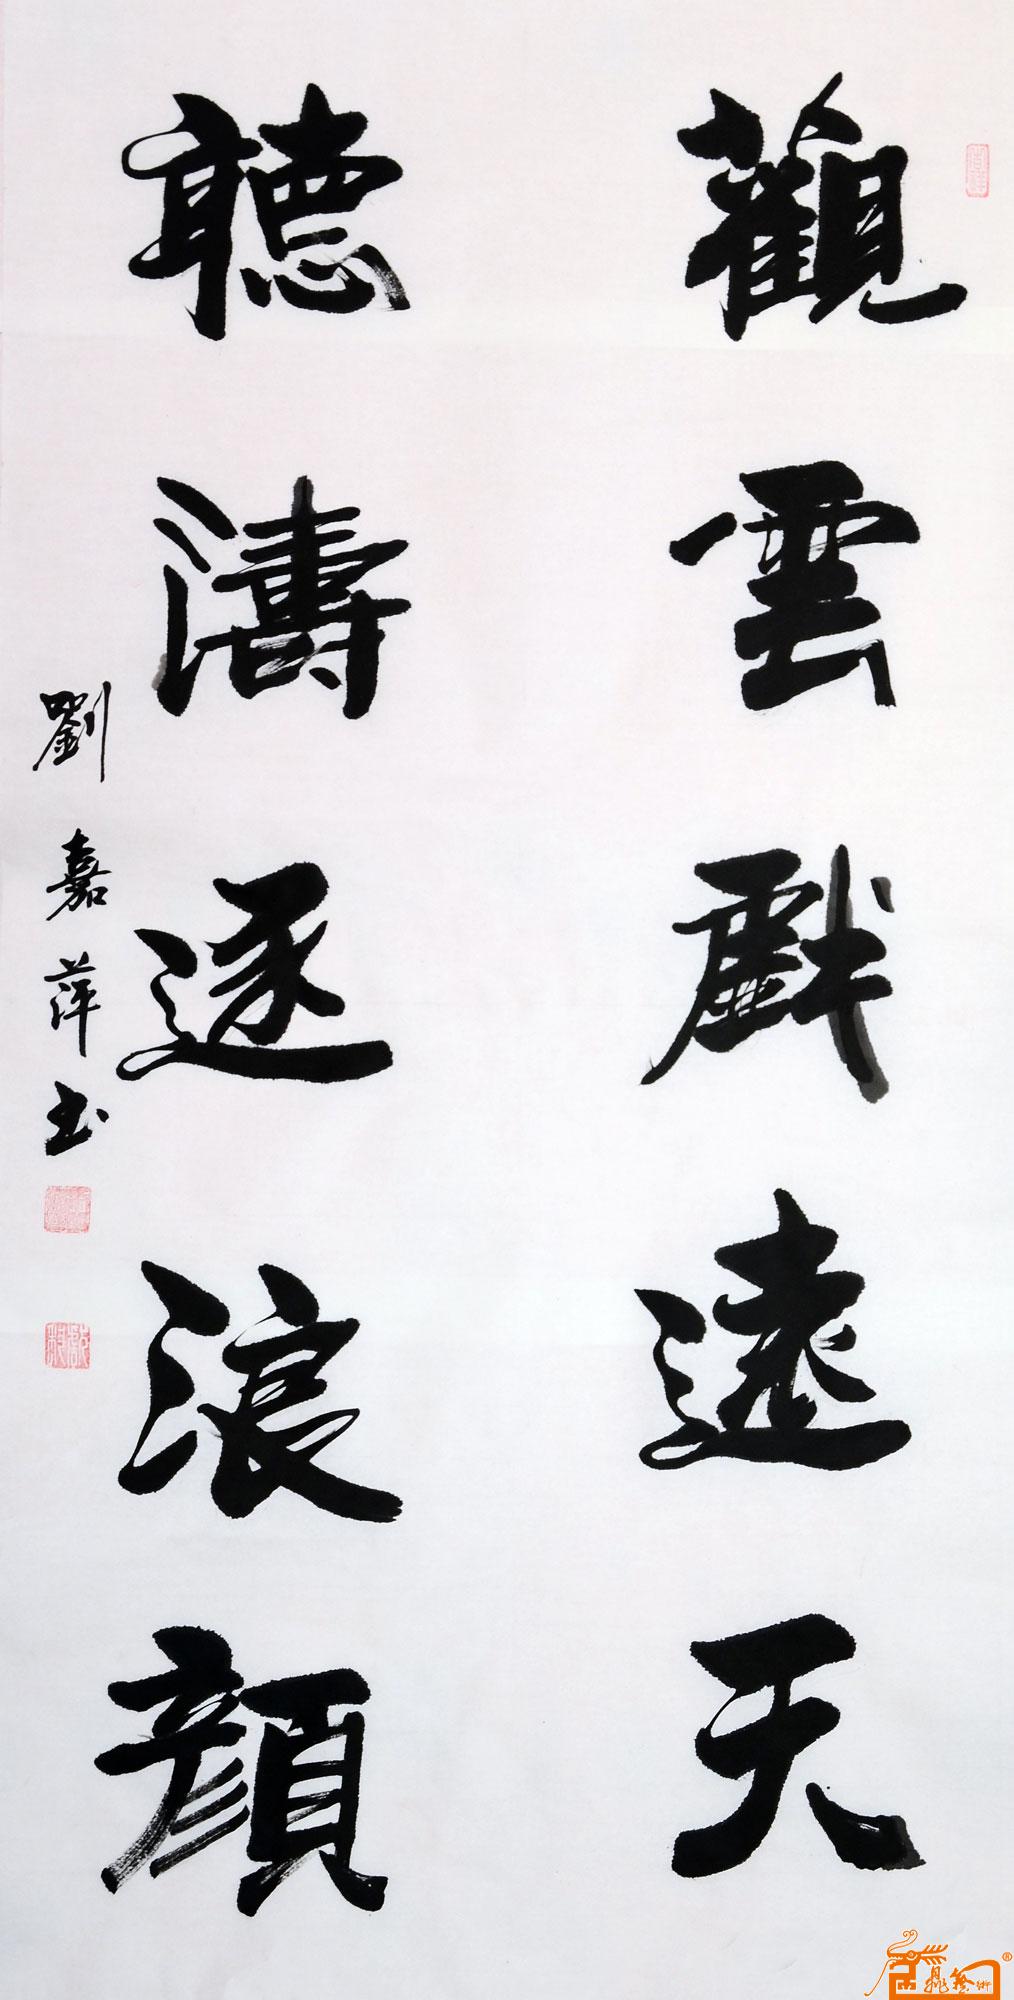 觀雲戲遠天
聽濤逐浪顏
劉嘉萍书